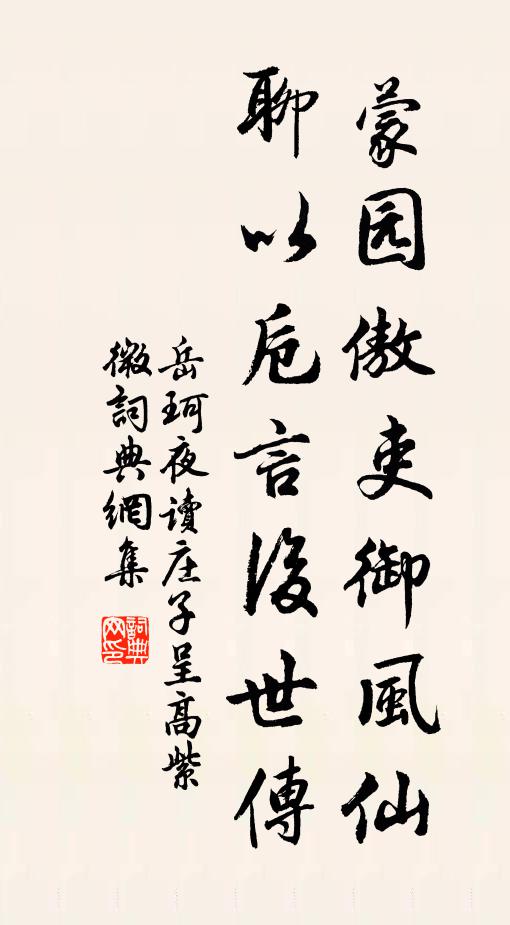 蒙园傲吏御風仙
聊以卮言後世傳
岳珂夜讀庄子呈高紫
微詞典網集
詞典
网印